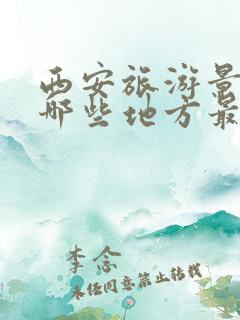 西安旅游景
哪些地方最
李念
未经同意禁止转载